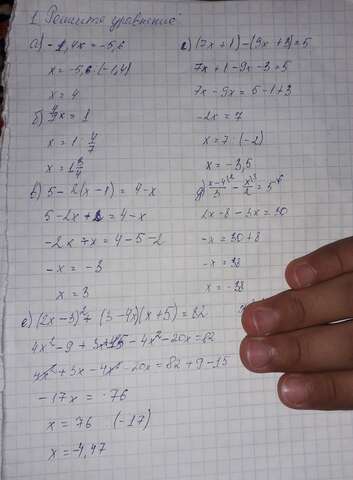 1. Решите уравнение:
а) -1,4x = -5,6
x = -5,6 : (-1,4)
x = 4
б) 4/7x = 1
x = 1 : 4/7
x = 1 3/4
в) 5 - 2(x - 1) = 4 - x
5 - 2x + 2 = 4 - x
-2x + x = 4 - 5 - 2
-x = -3
x = 3
г) (7x + 1) - (9x + 3) = 5
7x + 1 - 9x - 3 = 5
7x - 9x = 5 - 1 + 3
-2x = 7
x = 7 : (-2)
x = -3,5
д) x-4/3 - x/2 = 5
2x - 8 - 3x = 30
-x = 30 + 8
-x = 38
x = -38
е) (2x - 3)² + (3 - 4x)(x + 5) = 82
4x² - 9 + 3x + 15 - 4x² - 20x = 82
4x² + 3x - 4x² - 20x = 82 + 9 - 15
-17x = 76
x = 76 (-17)
x = -4,47